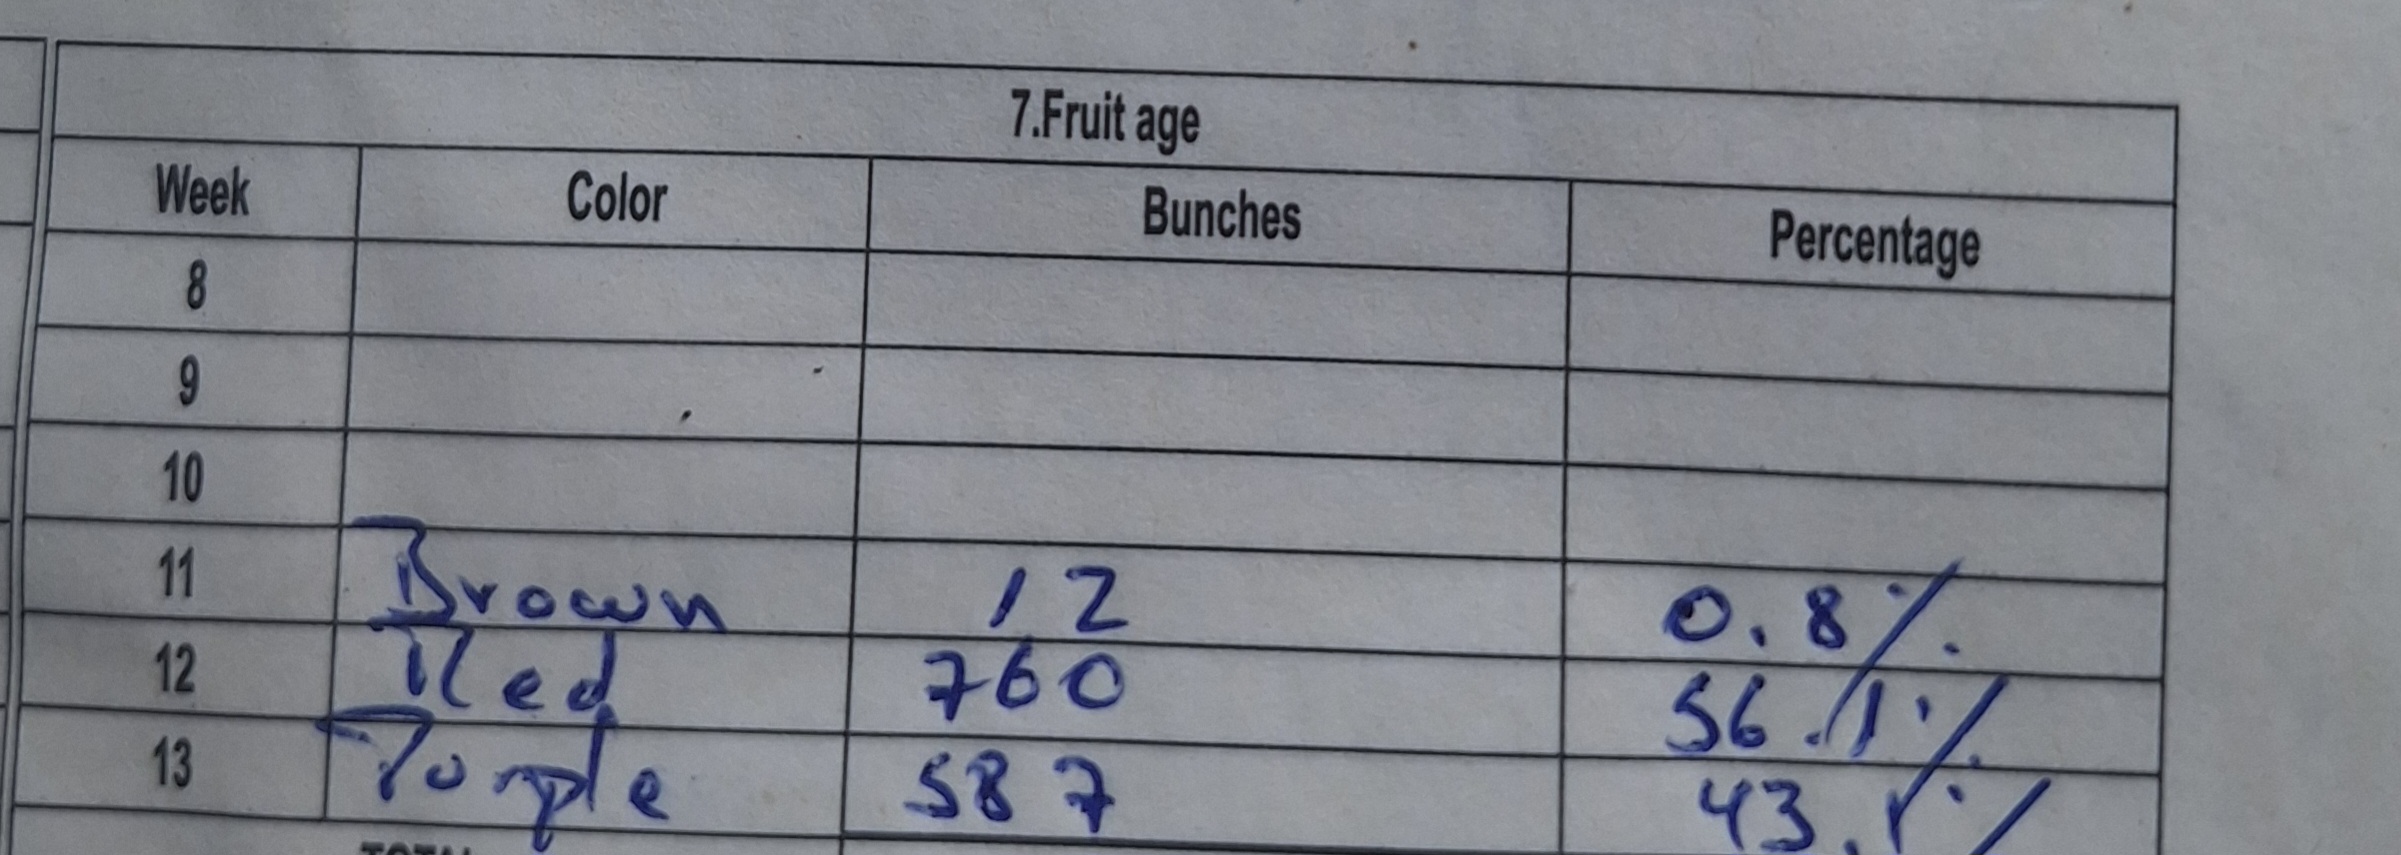 7.Fruit age
Week Color Bunches Percentage
8
9
10
11 Brown 12 0.8%
12 Red 760 56.1%
13 Porple 587 43.1%
TOTAL